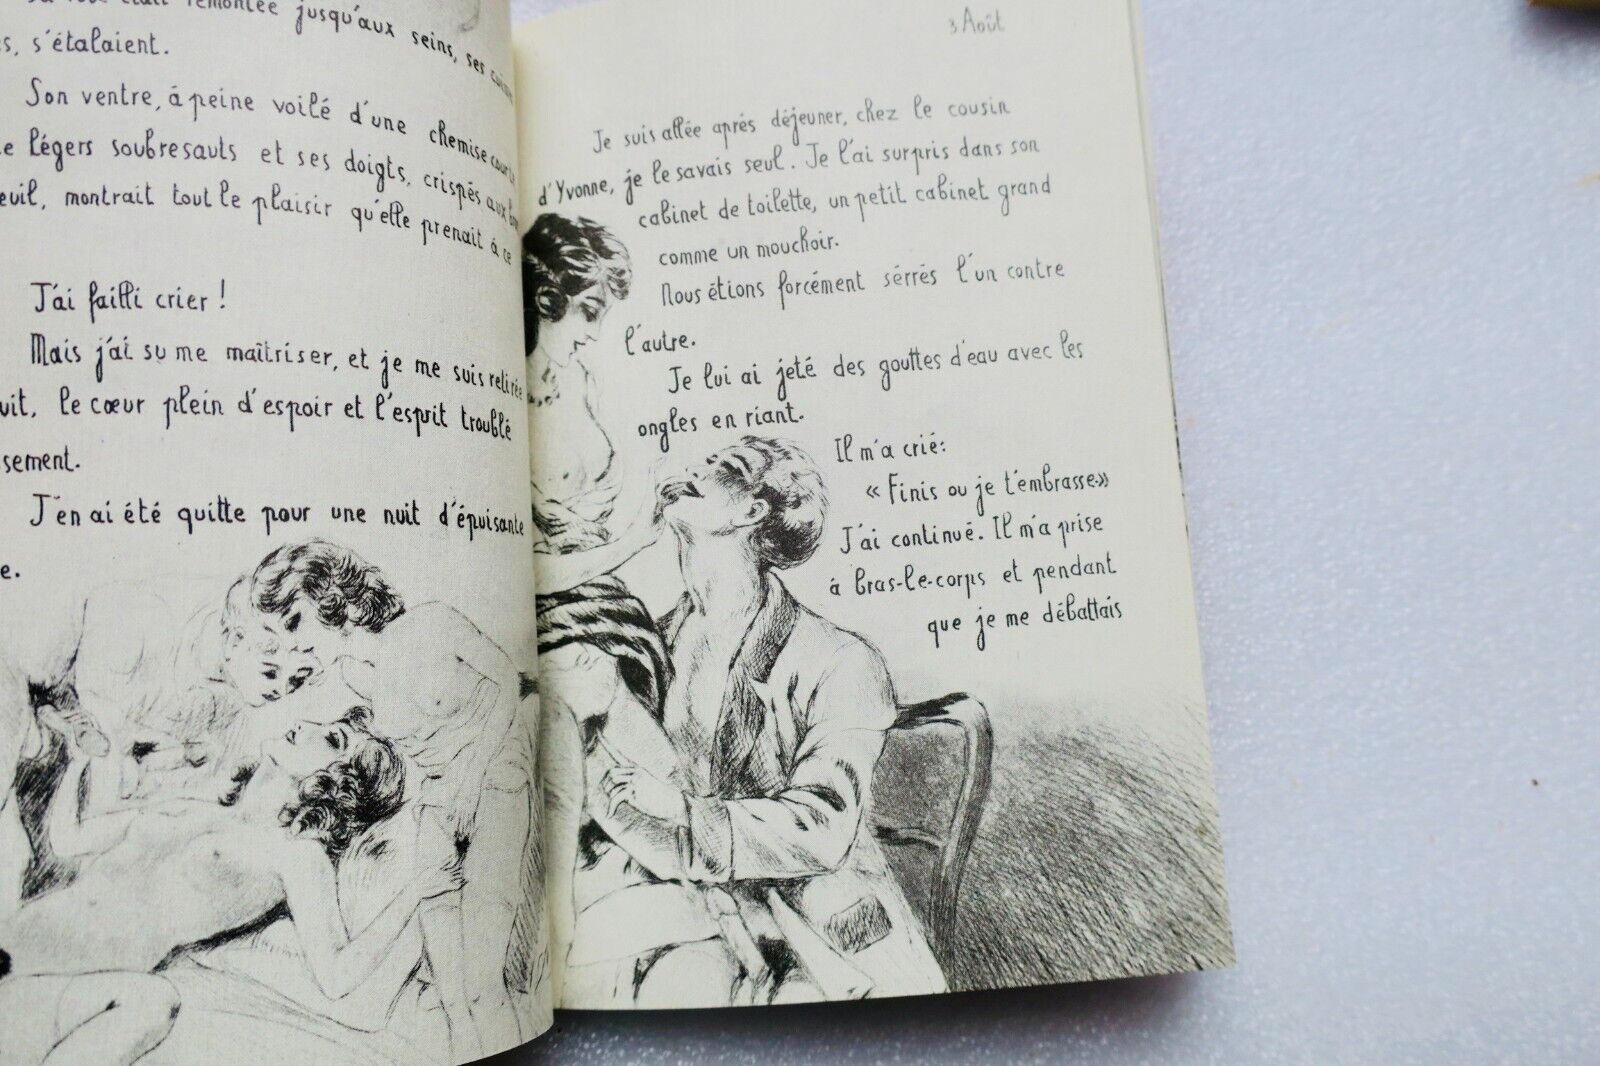 jusqu'aux seins, ses
s, s'étalaient.
Son ventre, à peine voilé d'une chemise
légers soubresauts et ses doigts, crispés aux
montrait tout le plaisir qu'elle prenait à ce
J'ai failli crier !
Mais j'ai su me maîtriser, et je me suis retirée
le cœur plein d'espoir et l'esprit troublé
J'en ai été quitte pour une nuit d'épuisante
e.
3 Août
Je suis allée après déjeuner, chez le cousin
d'Yvonne, je le savais seul. Je l'ai surpris dans son
cabinet de toilette, un petit cabinet grand
comme un mouchoir.
Nous étions forcément sérrés l'un contre
l'autre.
Je lui ai jeté des gouttes d'eau avec les
ongles en riant.
Il m'a crié:
« Finis ou je t'embrasse»
J'ai continué. Il m'a prise
à bras-le-corps et pendant
que je me débattais